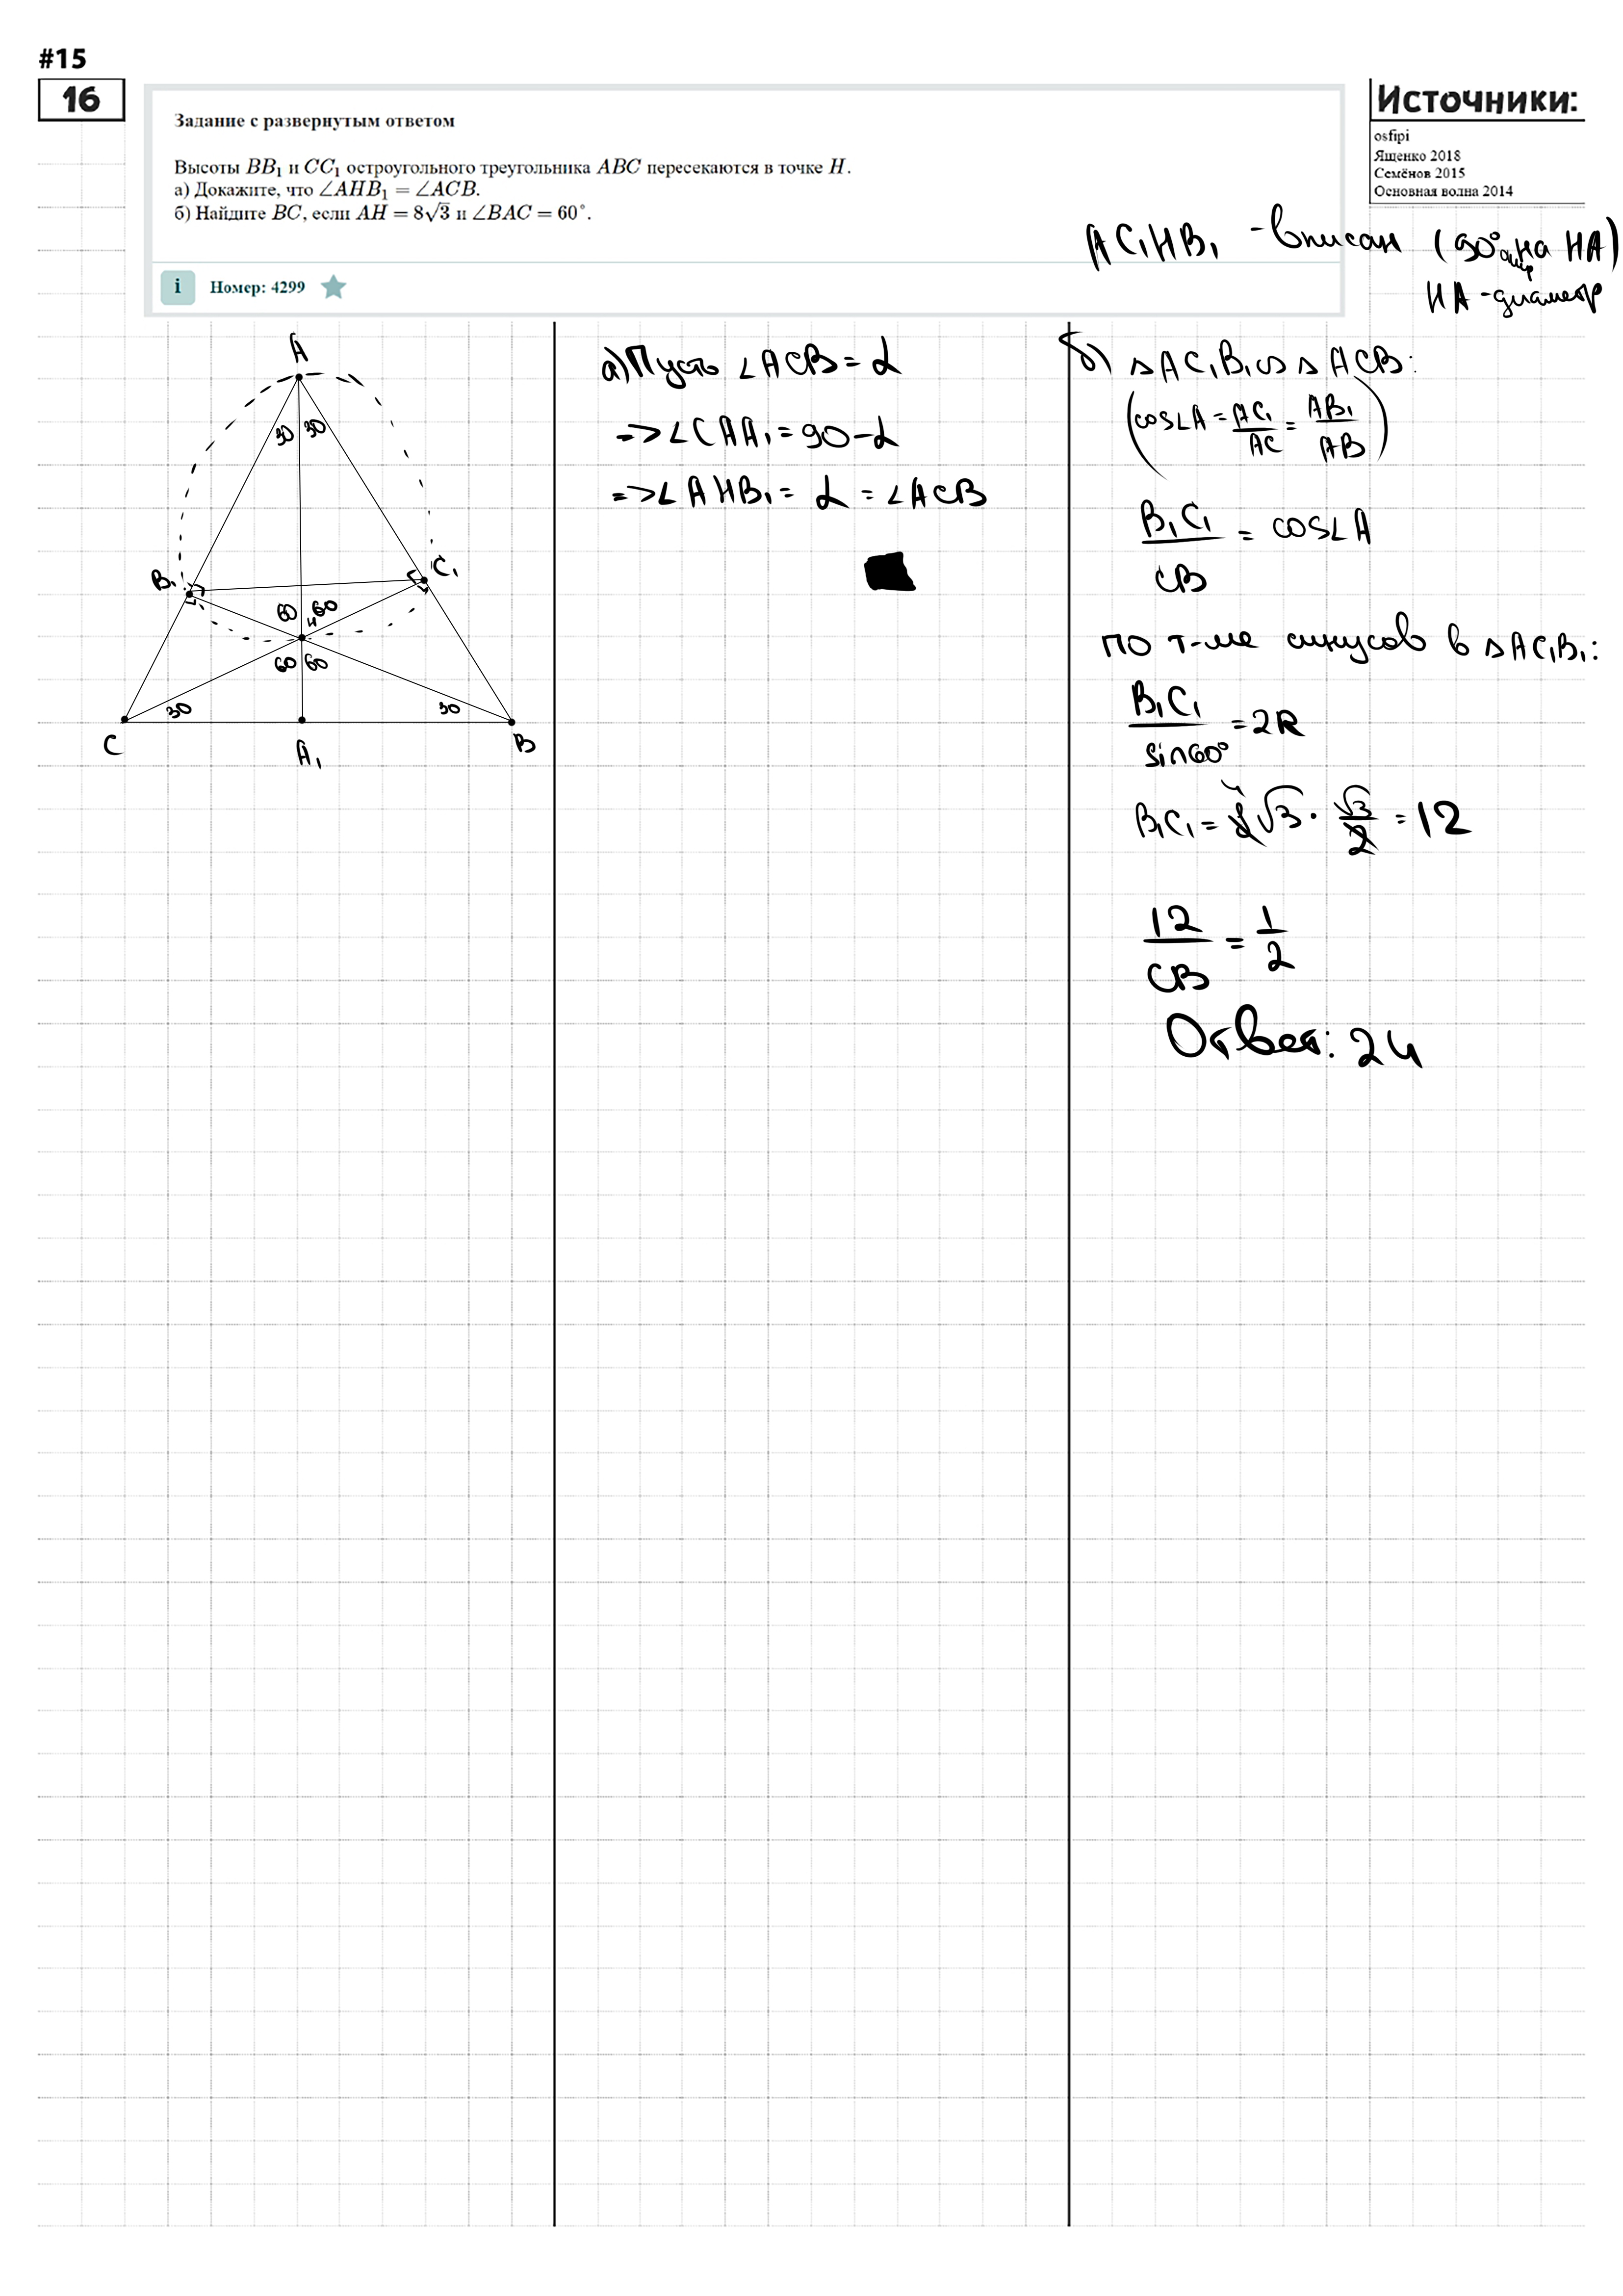 #15
16
Задание с развернутым ответом
Высоты BB₁ и CC₁ остроугольного треугольника ABC пересекаются в точке H.
а) Докажите, что ∠AHB₁ = ∠ACB.
б) Найдите BC, если AH = 8√3 и ∠BAC = 60°.
i Номер: 4299
Источники:
osfipi
Ященко 2018
Семёнов 2015
Основная волна 2014
AC₁HB₁ - вписан (90° опир на HA)
HA - диаметр
A
30 30
B₁
C₁
60 60
H
60 60
30
30
C
A₁
B
а) Пусть ∠ACB = α
=> ∠CAA₁ = 90 - α
=> ∠AHB₁ = α = ∠ACB
б) △AC₁B₁ ∽ △ACB:
(cos∠A = AC₁/AC = AB₁/AB)
B₁C₁/CB = cos∠A
по т-ме синусов в △AC₁B₁:
B₁C₁/sin60° = 2R
B₁C₁ = 8√3 · √3/2 = 12
12/CB = 1/2
Ответ: 24